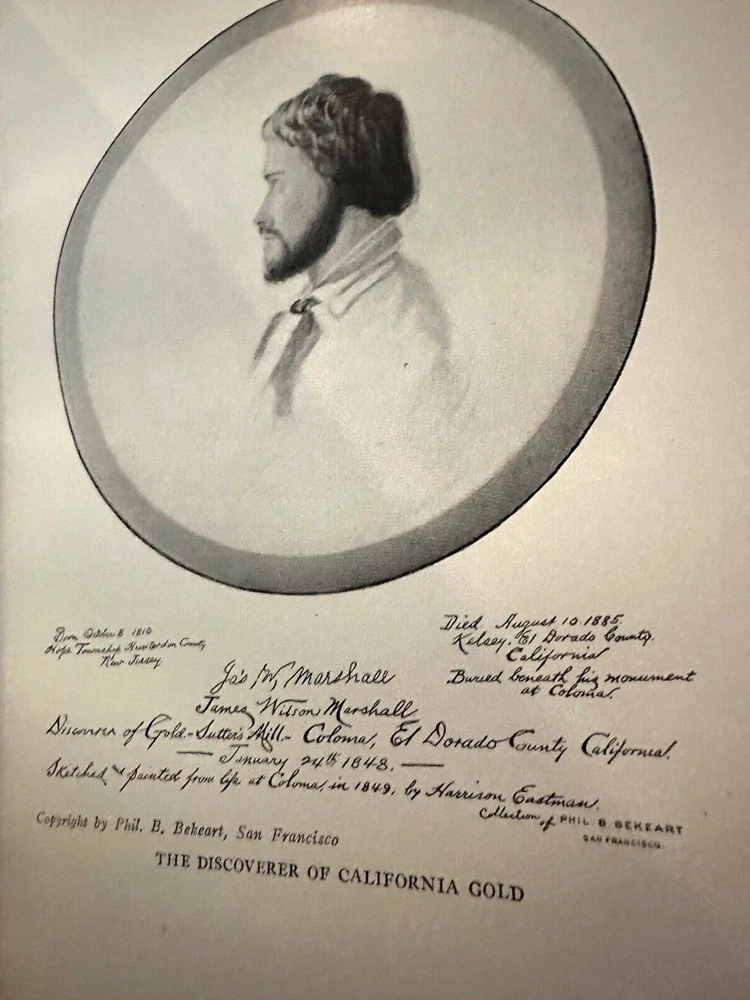 Born October 8 1810
Hope Township Hunterdon County
New Jersey
Died August 10 1885.
Kelsey. El Dorado County.
California
Buried beneath his monument
at Coloma.
Jas W, Marshall
James Wilson Marshall
Discoverer of Gold.- Sutter's Mill.- Coloma, El Dorado County California.
— January 24th 1848. —
Sketched and painted from life at Coloma, in 1849, by Harrison Eastman.
Collection of PHIL. B. BEKEART
SAN FRANCISCO.
Copyright by Phil. B. Bekeart, San Francisco
THE DISCOVERER OF CALIFORNIA GOLD